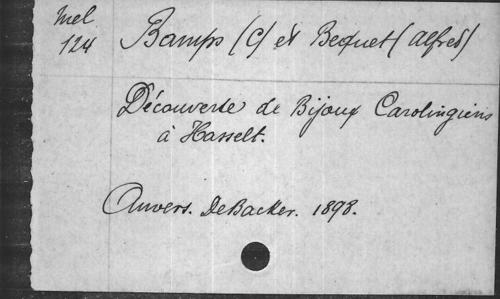 Mel.
124
Bamps (C) et Bequet (Alfred)
Découverte de Bijoux Carolingiens
à Hasselt.
Anvers. DeBacker. 1898.